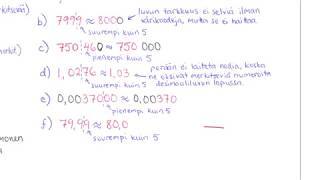 kitseviä)
b) 7999 ≈ 8000
luvun tarkkuus ei selviä ilman
värikoodeja, mutta se ei haittaa.
suurempi kuin 5
erkit)
c) 750 460 ≈ 750 000
pienempi kuin 5
d) 1,0276 ≈ 1,03
suurempi kuin 5
perään ei laiteta nollia, koska
ne olisivat merkitseviä numeroita
desimaaliluvun lopussa.
e) 0,003700 ≈ 0,00370
pienempi kuin 5
f) 79,99 ≈ 80,0
suurempi kuin 5
monen